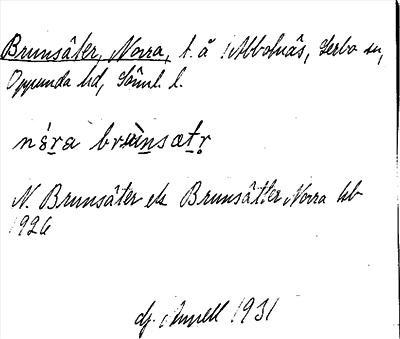 Brunsäter, Norra, t. å Abbohäs, Lerbo sn,
Oppunda hd, Söml. l.
nòra brùnsætr
N. Brunsäter el. Brunsätter Norra kb
1926
dj. Ansell 1931